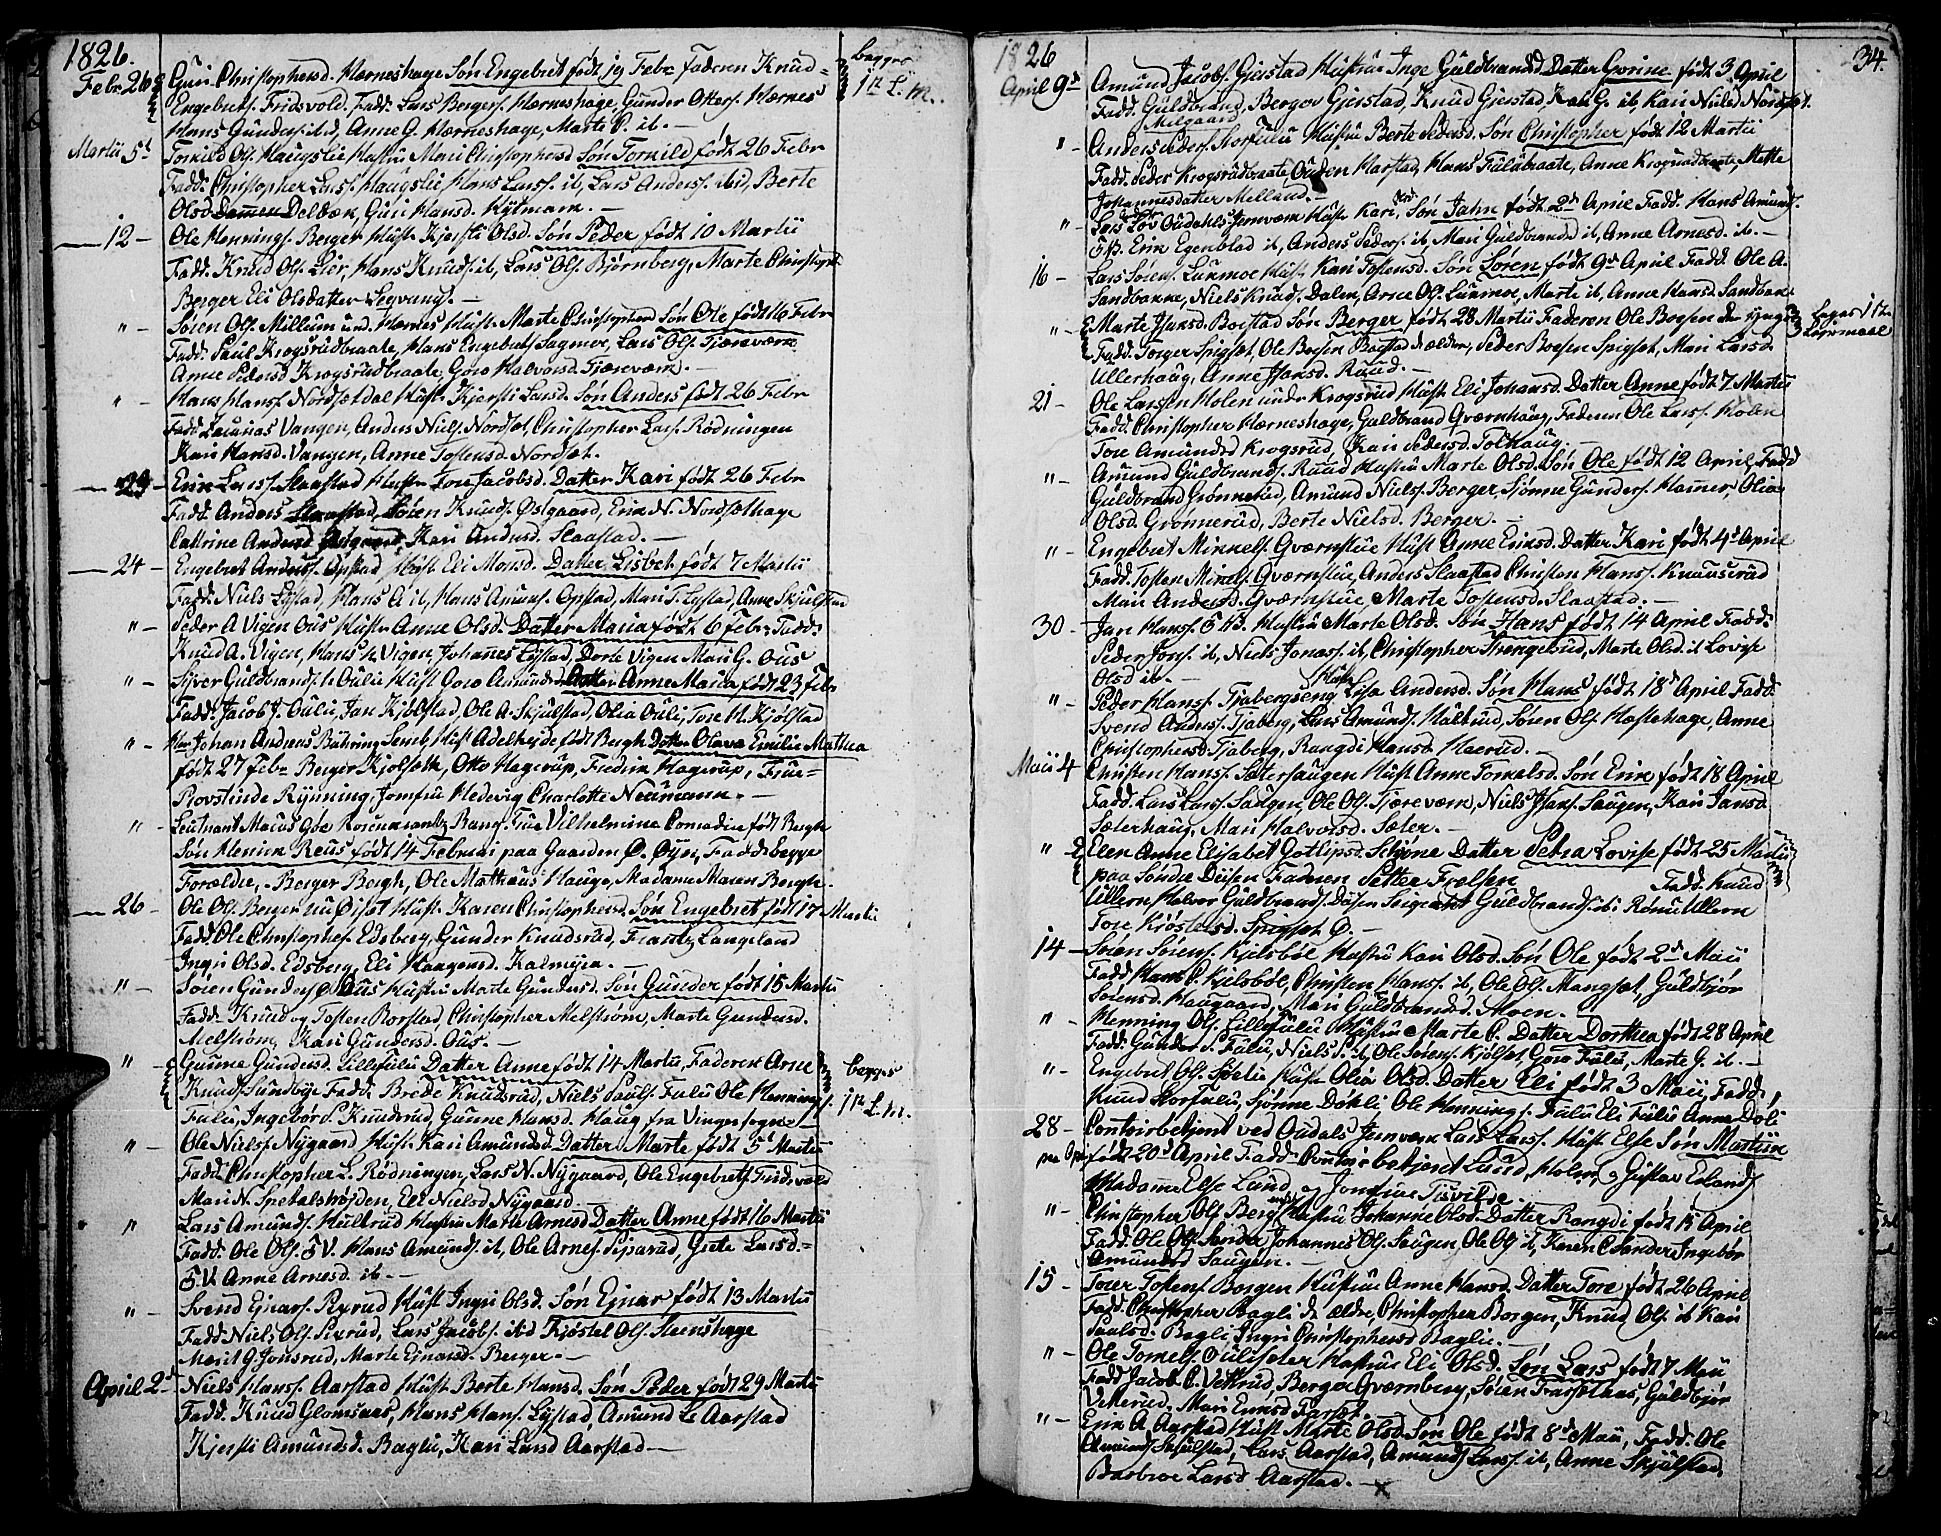 1826.
Febr. 26 Guri Christophersd. Hærneshage Søn Engebret født 19 Febr. Faderen Knud
Engebrets. Fridsvold. Fadd. Lars Bergers. Hærneshage, Gunder Otters. Hærnes
Hans Gunders. ibid, Anne G. Hærneshage, Marte P. ib. —
begges
1ste L. m.
Martii 5d Torkild Ols. Haugslie Hustr. Mari Christophersd Søn Torkild født 26 Febr
Fadd. Christopher Larss. Haugslie, Hans Larss. ib, Lars Anderss. ibid, Berte
Olsd. Delbæk, Guri Hansd. Kytmark. —
— 12 — Ole Hennings. Berger Hust. Kjersti Olsd. Søn Peder født 10 Martii
Fadd. Knud Ols. Lier, Hans Knuds. ib, Lars Ols. Bjørnberg, Marte Christophd.
Berger Eli Olsdatter Segvang. —
" — Søren Ols. Millum und. Hærnes Hustr. Marte Christophersd Søn Ole født 16 Febr
Fadd. Paul Krogsrudbraate, Hans Engebrets. Sagmoe, Lars Ols. Tjæreværk
Anne Pedersd Krogsrudbraate, Goro Halvorsd. Tjæreværk. —
" — Hans Hans. Nordsetdal Hust. Kjersti Larsd. Søn Anders født 26 Febr
Fadd. Zacarias Vangen, Anders Niels. Nordset, Christopher Lars. Rødningen
Kari Hansd. Vangen, Anne Tostensd. Nordset.
— 23 — Erik Larss. Slaastad Hustr. Tore Jacobsd. Datter Kari født 26 Febr
Fadd. Anders Slaastad, Søren Knuds. Østgaard, Erik N. Nordsethage
Cathrine Andersd Østgaard, Kari Andersd. Slaastad. —
— 24 — Engebret Anderss. Opstad Hust. Eli Monsd. Datter Lisbet født 7 Martii
Fadd. Niels Lystad, Hans A. ib, Hans Amuns. Opstad, Mari T. Lystad, Anne Skjulstad
" — Peder A Vigen Ous Hustr. Anne Olsd. Datter Maria født 6 Febr. Fadd.
Knud A. Vigen, Hans H. Vigen, Johannes Lystad, Dorte Vigen Mari G. Ous
" — Syver Guldbrands. Ouli Hust. Goro Amundsd. Datter Anne Maria født 23 Febr
Fadd. Jacob J. Ouli, Jan Kjølstad, Ole A. Skjulstad, Olia Ouli, Tore H. Kjølstad
" — Johan Andreas Bühring Semb Hust. Adelheide født Bergh Datter Olava Emilie Mathea
født 27 Febr. Berger Kjølseth, Otto Hagerup, Fredrik Hagerup, Frue
Provstinde Rynning, Jomfru Hedevig Charlotte Neumann. —
" — Leutnant Macus Göe Rosenkrantz Bang. Frue Vilhelmine Conradin født Bergh
Søn Henrik Reus født 14 Februari paa Gaarden Ø. Øyn, Fadd. begge
Forældre, Berger Bergh, Ole Mathæus Hauge, Madame Maren Bergh.
— 26 — Ole Ols. Berger nu Øiset Hust. Karen Christophersd. Søn Engebret født 17 Martii
Fadd. Ole Christophes. Edsberg, Gunder Knudsrud, Frantz Langeland
Ingri Olsd. Edsberg, Eli Haagensd. Kalmyra. —
" — Søren Gunders. Ø Ous Hustru Marte Gundersd. Søn Gunder født 15 Martii
Fadd. Knud og Tosten Borstad, Christopher Melstrøm, Marte Gundersd.
Melstrøm, Kari Gundersd. Ous. —
" — Gunne Gundersd. Lillefulu Datter Anne født 14 Martii, Faderen Arne
Knuds. Sundbye Fadd. Brede Knudsrud, Niels Pauls. Fulu Ole Hennings.
Fulu, Ingebor P. Knudsrud, Gunne Hansd. Haug fra Vinger sogn. —
begges
1ste L. m.
" — Ole Niels. Nygaard Hust. Kari Amundsd Datter Marte født 5d Martii
Fadd. Christopher L. Rødningen, Lars N. Nygaard, Ole Engebrets Fridsvold
Mari N. Spetalshøyden, Eli Nielsd Nygaard
" — Lars Amunds. Hultrud Hustru Marte Arnesd Datter Anne født 16 Martii
Fadd. Ole Ols. S.V. Hans Amunds. ib, Ole Arnes. Sysarud, Grete Larsd.
S.V. Anne Arnesd. ib —
" — Svend Ejnars. Ryrud Hust. Ingri Olsd. Søn Ejnar født 13 Martii
Fadd. Niels Ols. Sixrud, Lars Jacobs. ibd Kjøstel Ols. Steenshage
Marit G. Jonsrud, Marte Ejnarsd. Berger. —
April 2d Niels Hans. Aarstad Hust. Berte Hansd. Søn Peder født 29 Martii
Fadd. Knud Glomsaas, Hans Hans. Lystad, Amund L. Aarstad
Kjersti Amundsd. Bagli, Kari Larsd Aarstad —
1826
34.
April 9d Amund Jacobs. Gjerstad Hustrue Inge Guldbrandsd Datter Gorine født 3 April
Fadd. Guldbrand, Berger Gjerstad, Knud Gjerstad Kari G. ib, Kari Nielsd Nordset.
Melgaard
" — Anders Peders. Storfulu Hustru Berte Pedersd. Søn Christopher født 12 Martii
Fadd. Peder Krogsrudbraate Ouden Harstad, Hans Fulubraate, Anne Krogsrudbraate, Mette
Johannesdatter Melland. —
" — Lars Løv Oudahls Jernværk Hustr. Kari Søn Jahn født 2d April Fadd. Hans Amunds.
S.B. Erik Egenblad ib, Anders Peders. ib, Mari Guldbrandsd ib, Anne Arnesd. ib. —
16 — Lars Sørens. Lurmoe Hust. Kari Tostensd. Søn Soren født 9d April Fadd. Ole A.
Sandbakke, Niels Knuds. Dalen, Arne Ols. Lurmoe, Marte ib, Anne Hansd. Sandbak
" — Marte Hansd. Borstad Søn Berger født 28 Martii Faderen Ole Boesen den yngre
Fadd. Torger Spigset, Ole Boesen Bagstad d. ældre, Peder Boesen Spigset, Mari Larsd.
Ullerhaug, Anne Hansd. Ruud. —
begges 1ste
Leiermaal
21 — Ole Larsen Holen under Krogsrud Hust. Eli Johansd. Datter Anne født 7 Martii
Fadd. Christopher Hærneshage, Guldbrand Qværnhaug, Faderen Ole Larss. Holen
Tore Amundsd Krogsrud, Kari Pedersd. Tolhaug. —
" — Amund Guldbrands. Ruud Hustru Marte Olsd. Søn Ole født 12 April, Fadd
Guldbrand Grønnerud, Amund Niels. Berger, Sjønne Gunders. Hamer, Olia
Olsd. Grønnerud, Berte Nielsd. Berger. —
" — Engebret Mikkels. Qværnstue Hust. Anne Eriksd. Datter Kari født 4d April
Fadd. Tosten Mikels. Qværnstue, Anders Slaastad Christen Hanss. Knauserud
Mari Andersd. Qværnstue, Marte Tostensd. Slaastad. —
30 — Jan Hanss. S.B. Hustru Marte Olsd. Søn Hans født 14 April Fadd.
Peder Jons. ib, Niels Jonass. ib, Christopher Trengebrud, Marte Olsd. ib Lovise
Olsd ib. —
" — Peder Hans. Tjabergseng Hust. Lisa Andersd. Søn Hans født 18d April Fadd.
Svend Anderss. Tjaberg, Lars Amunds. Hultrud, Søren Ols. Hastehage, Anne
Christophersd. Tjaberg, Rangdi Hansd. Haerud. —
Maii 4 Christen Hans. Sætersaugen Hust. Anne Torkelsd. Søn Erik født 18 April
Fadd. Lars Larss. Saugen, Ole Ols. Tjæreværk, Niels Hans. Saugen, Kari Jansd.
Sæterhaug, Mari Halvorsd. Sæter. —
" — Elen Anne Elisabet Gotlipsd. Schöne Datter Petra Lovise født 25 Martii
paa Søndre Disen Faderen Petter Frolsen
Fadd. Knud
Ullern, Halvor Guldbrands. Disen Sergeant Guldbrands. ib. Rønnu Ullern
Tore Kjøstelsd. Spigset D. —
14 — Soren Sørens. Kjelsbøl Hustru Kari Olsd. Søn Ole født 2d Maii
Fadd. Hans C. Kjelsbøl, Christen Hanss. ib, Ole Ols. Mangset, Guldbjør
Sørensd. Haugaard, Mari Guldbrandsd. Moen. —
" — Henning Ols. Lillefulu Hustru Marte P. Datter Dorthea født 28 April
Fadd. Gunder P. Fulu, Niels P. ib, Ole Sørens. Kjølset Goro Fulu, Marte G. ib. —
" — Engebret Ols. Spelu Hust. Olia Olsd. Datter Eli født 3 Maii, Fadd.
Knud Storfulu, Sjønne Døhli Ole Hennings. Fulu Eli Fulu Anne Døli
28 — Contoirbetjent ved Oudals Jernværk Lars Larss. Hust. Else Søn Martiin
født 20d April Fadd. Contoirbetjent Lund, Holm, og Gustav Erlands.
Madame Else Lund og Jomfrue Tisvilde
" — Christopher Ols. Berg Hustru Johanne Olsd. Datter Rangdi født 15 April
Fadd. Ole Ols. Sander Johannes Ols. Saugen, Ole Ols. ib, Karen C Sander Ingebor
Amundsd Saugen. —
15 — Torer Tostens. Borgen Hustrue Anne Hansd. Datter Tore født 26 April
Fadd. Christopher Bagli d. ældre, Christopher Borgen, Knud Ols. ib Kari
Paulsd. Bagli Ingri Christophersd. Bagli. —
" — Ole Torkels. Ouliseter Hustrue Eli Olsd. Søn Lars født 7 Maii
Fadd. Jacob C. Vetterud, Berger Qværnberg, Søren Frasetaas, Guldbjør
Vetterud, Mari Eriksd Farset. —
" — Erik A. Aarstad Hust Marte Olsd. Søn Ole født 8d Maii, Fadd. Ole
Amunds Skjulstad, Lars Aarstad, Amund Larss. ib, Anne Skjulstad,
Barbroe Larsd Aarstad. —